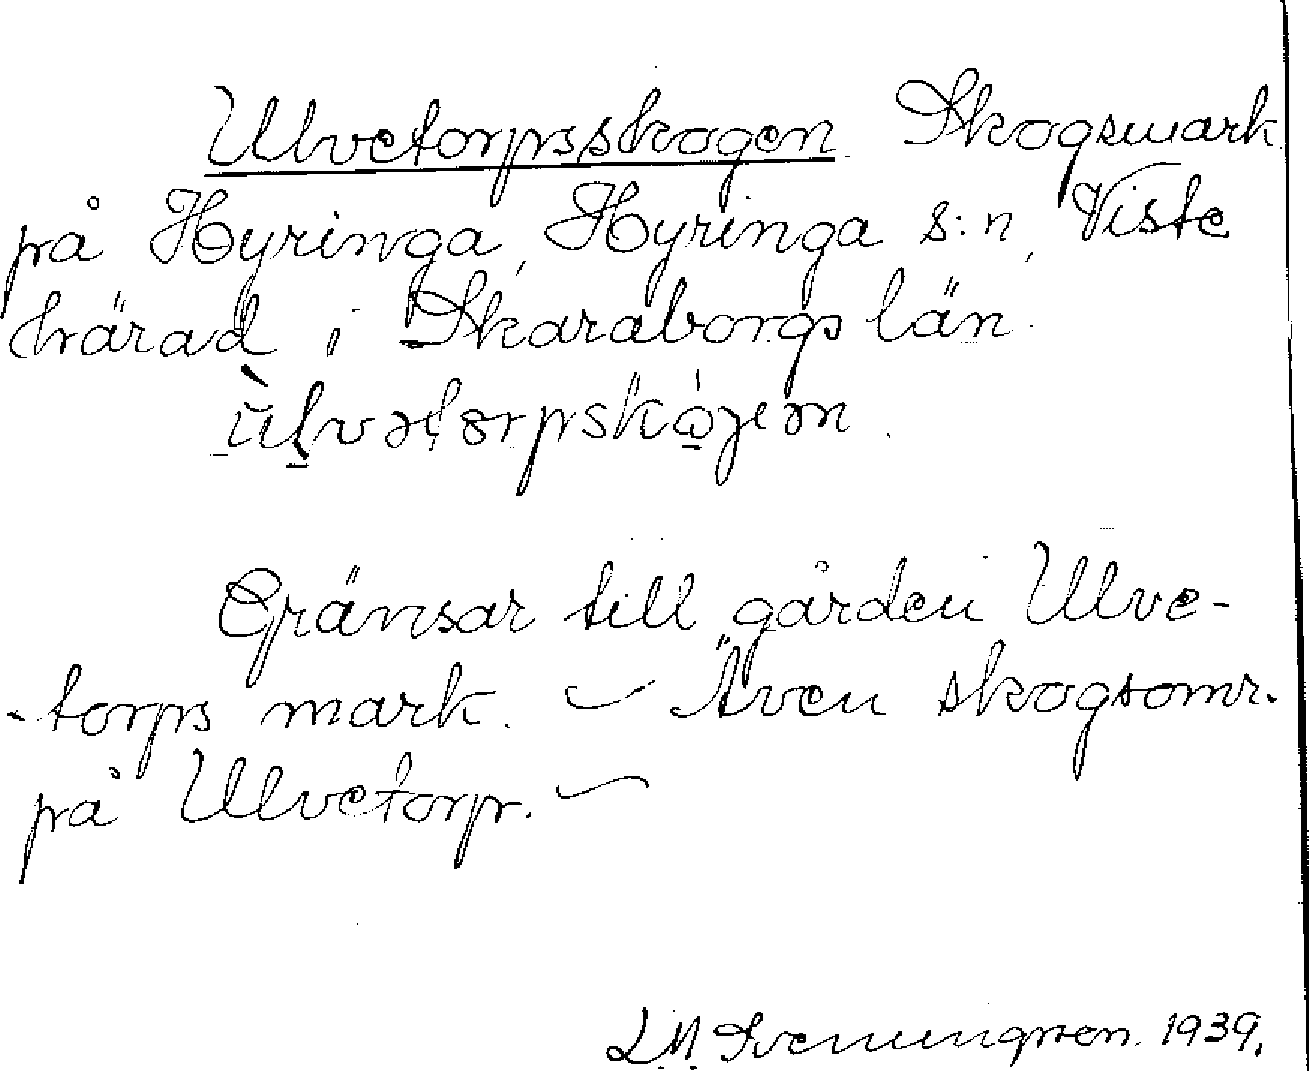 Ulvetorpsskogen Skogsmark
på Hyringa, Hyringa s:n, Viste
härad i Skaraborgs län.
ùlvətorpskǫ́gən.
Gränsar till gården Ulve-
-torps mark. – Även skogsomr.
på Ulvetorp. –
L.M. Svenungsson. 1939.